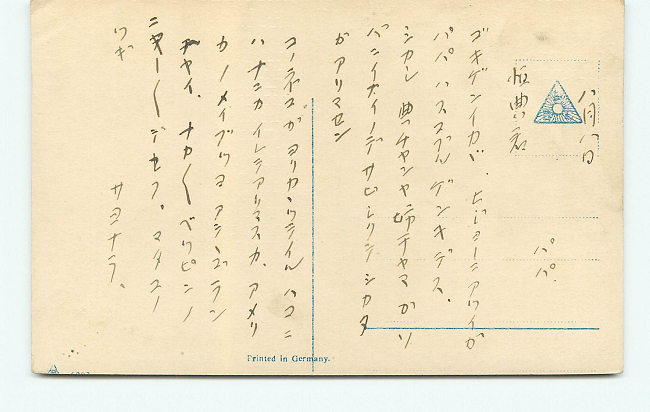 八月八日
典君
パパ
ゴキゲンイカガ. ヒジョーニアツイガ
パパハスコブルゲンキデス。
シカシ 典チャンヤ姉チャマガソ
バニイナイノデサビシクテシカタ
ガアリマセン
コノネコガヨリカカツテイルハコニ
ハナニカイレテアリマスカ、アメリ
カノメイブツヨアテテゴラン
ナサイ、ナカ〱ベツピンノ
ニヤー〱デセフ。マタコノ
ツギ
サヨナラ。
Printed in Germany.